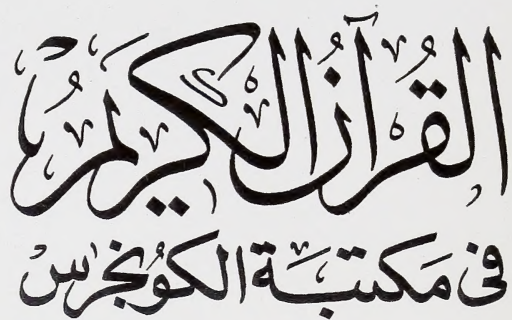 القُرآنُ الكَريمُ
في مَكتَبَة الكونُجرِس